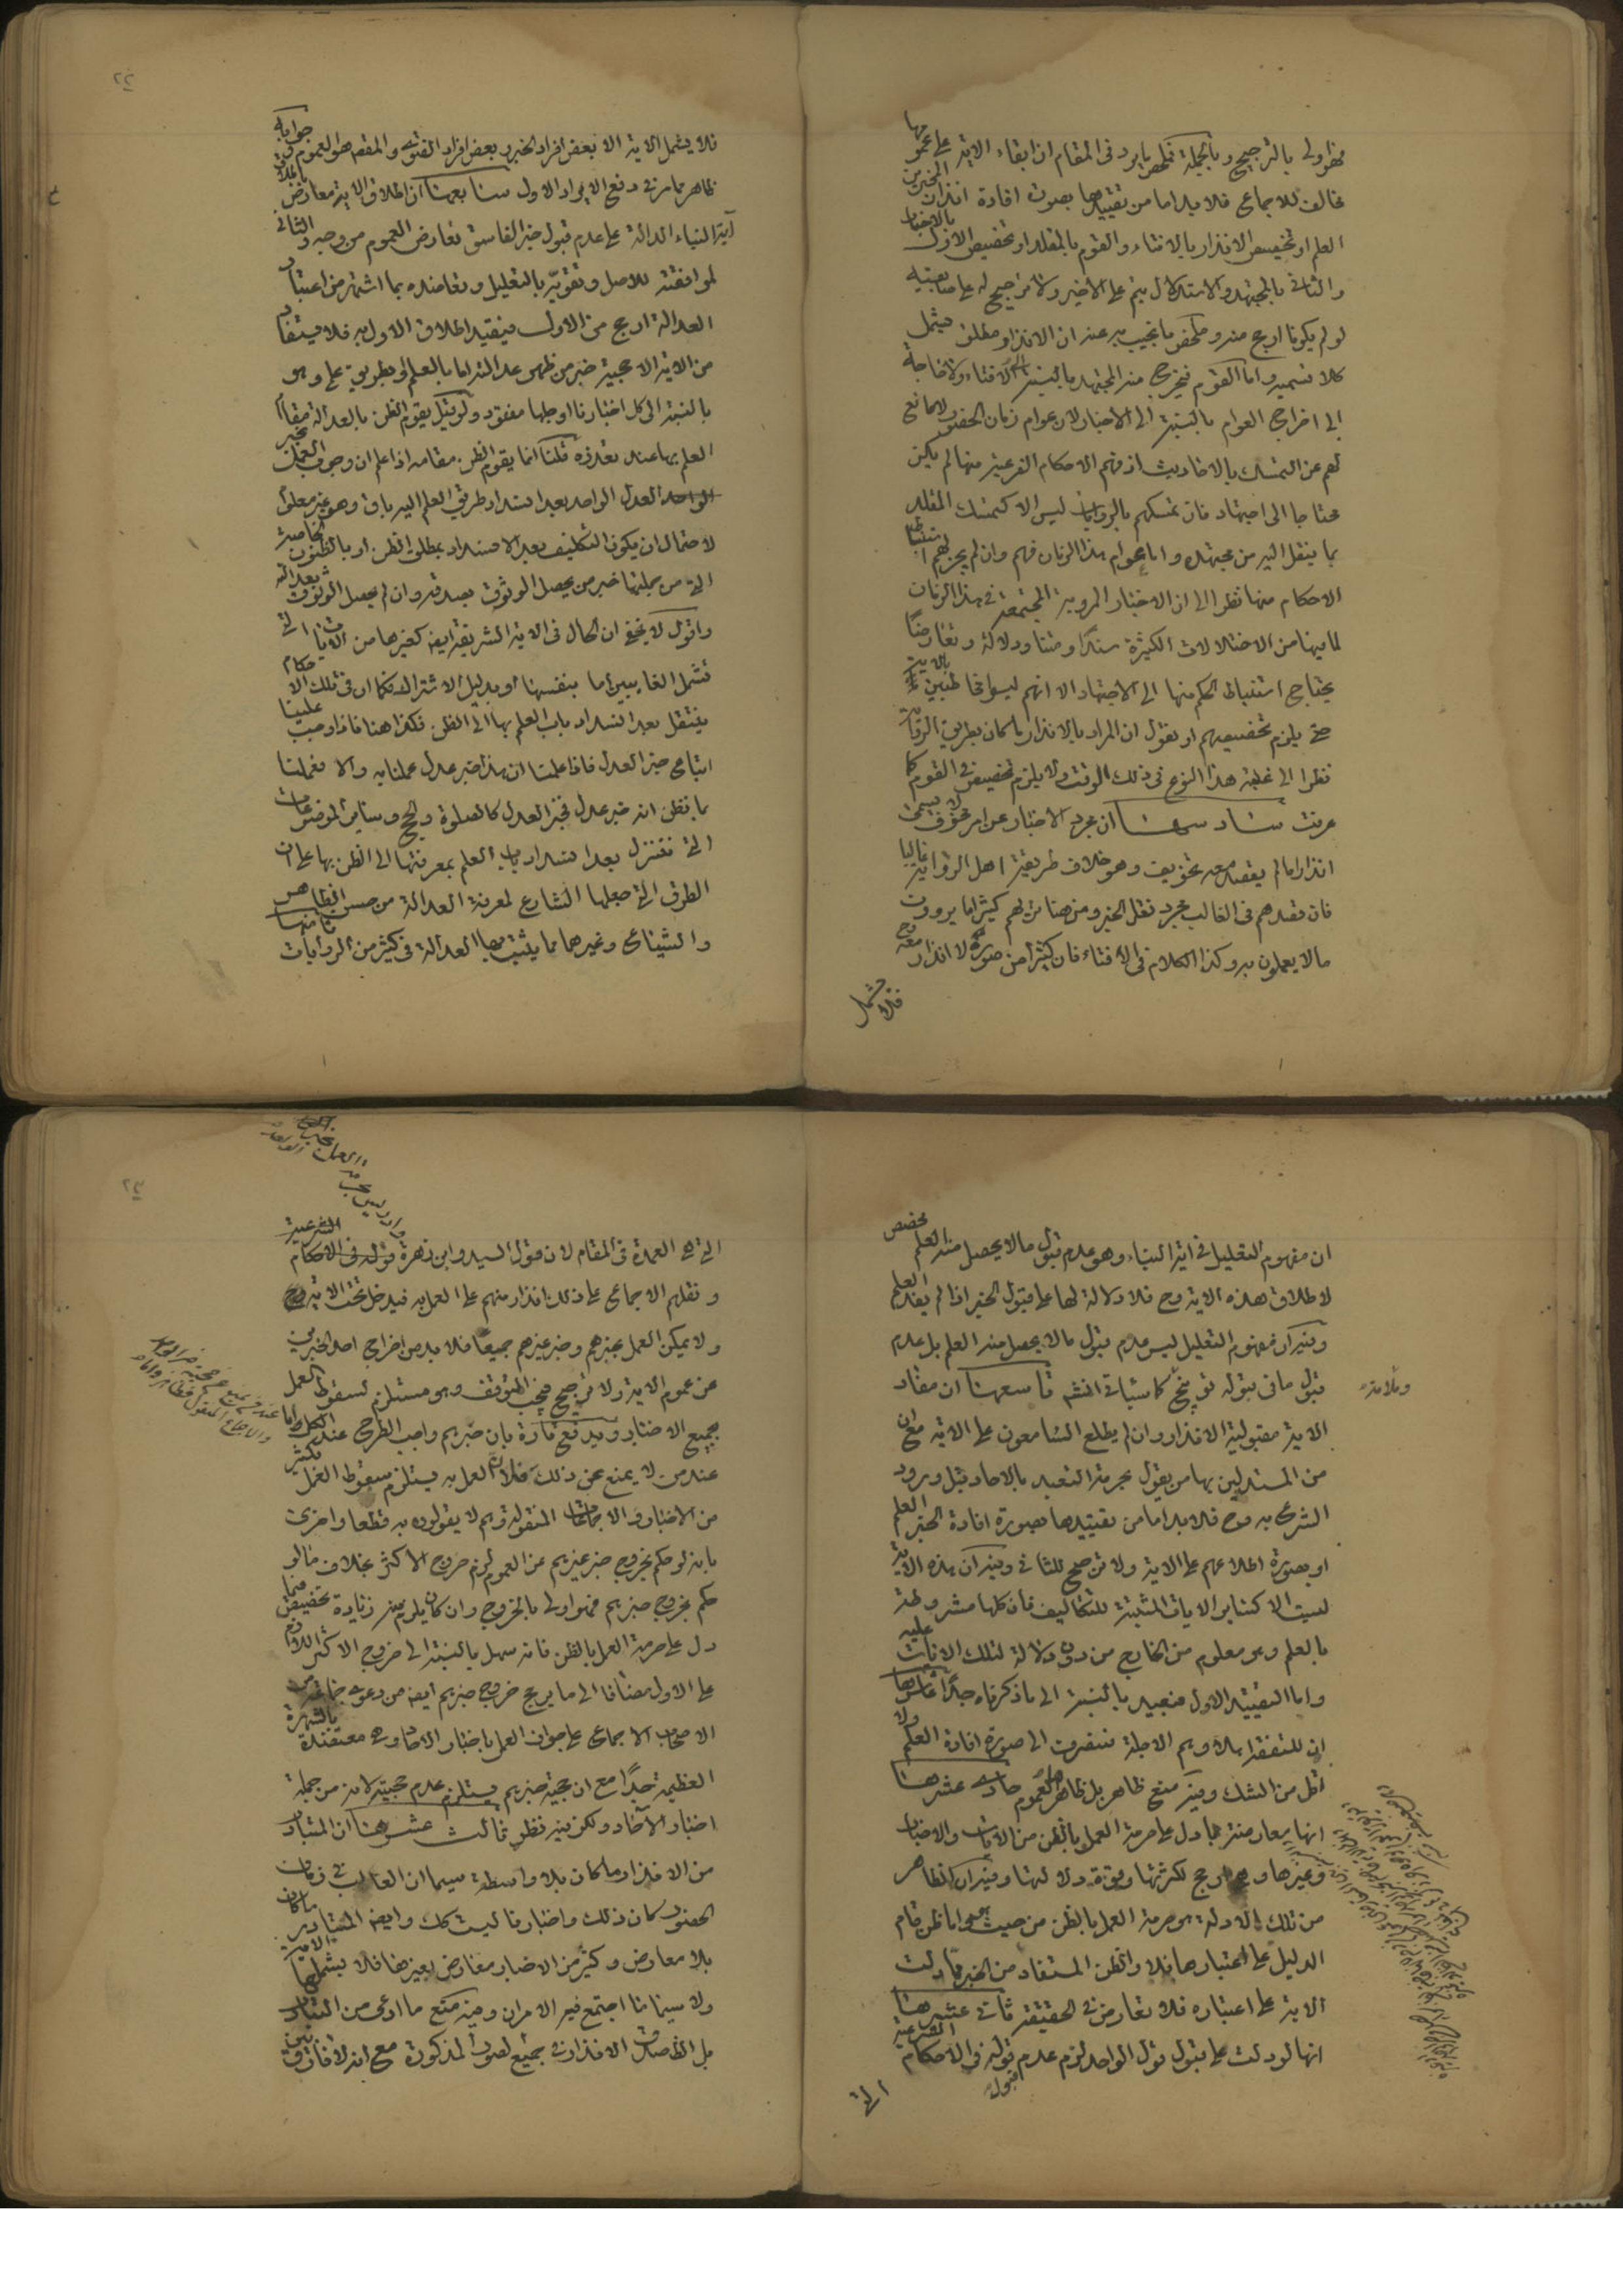 فهو اولى بالترجيح وبالجملة فملخص ما يرد فى المقام ان ابقاء الاية على عمومها
مخالف للاجماع فلا بد اما من تقييدها بصورة افادة انذار المخبرين
العلم او تخصيص الانذار بالافتاء والقوم بالمقلد او تخصيص الاول بالاخبار
والثانى بالمجتهد والاستدلال يتم على الاخير ولا ترجيح له على صاحبيه
لو لم يكونا ارجح منه وملخص ما نجيب به عنه ان الانذار مطلق يشمل
كلا قسميه واما القوم فيخرج منه المجتهد بالنسبة الى الافتاء ولا حاجة
الى اخراج العوام بالنسبة الى الاخبار لان عوام زمان الحضور لا مانع
لهم عن التمسك بالاحاديث اذ فهم الاحكام الشرعية منها لم يكن
محتاجا الى اجتهاد فان تمسكهم بالروايات ليس الا كتمسك المقلد
بما ينقل اليه من مجتهده واما عوام هذا الزمان فهم وان لم يجز لهم استنباط
الاحكام منها نظرا الى ان الاخبار المروية المجتمعة فى هذا الزمان
لما فيها من الاختلالات الكثيرة سندا ومتنا ودلالة وتعارضا
يحتاج استنباط الحكم منها الى الاجتهاد الا انهم ليسوا مخاطبين بالاية
حتى يلزم تخصيصهم او نقول ان المراد بالانذار ما كان بطريق الرواية
نظرا الى غلبة هذا النوع فى ذلك الوقت ولا يلزم تخصيص فى القوم كما
عرفت سادسها ان مجرد الاخبار عن امر مخوف لا يسمى
انذارا ما لم يقصد معه تخويف وهو خلاف طريقة اهل الرواية غالبا
فان قصدهم فى الغالب مجرد نقل الخبر ومن هنا ترى لهم كثيرا ما يروون
ما لا يعملون به وكذا الكلام فى الافتاء فان كثيرا من صوره لا انذار معه
فلا يشمل
٢٢
فلا يشمل الاية الا بعض افراد الخبر وبعض افراد الفتوى والمقصود هو العموم وجوابه
ظاهر مما مر فى دفع الايراد الاول سابعها ان اطلاق الاية معارض باطلاق
آية النباء الدالة على عدم قبول خبر الفاسق تعارض العموم من وجه والثانى
لموافقته للاصل وتقويه بالتعليل وتعاضده بما اشتهر من اعتبار
العدالة ارجح من الاول فيقيد اطلاق الاول به فلا يستفاد
من الاية الا حجية خبر من ظهر عدالته اما بالعلم او بطريق علمى وهو
بالنسبة الى كل اخبارنا او جلها مفقود ولو قيل يقوم الظن بالعدالة مقام
العلم بها عند تعذره قلنا انما يقوم الظن مقامه اذا علم ان وجوب العمل بخبر
العدل الواحد بعد انسداد طريق العلم اليه باق وهو غير معلوم
لاحتمال ان يكون التكليف بعد الانسداد بمطلق الظن او بالظنون الخاصة
التى من جملتها خبر من يحصل الوثوق بصدقه وان لم يحصل الوثوق بعدالته
واقول لا يخفى ان الحال فى الاية الشريفة ايضا كغيرها من الايات التى
تشمل الغايبين اما بنفسها او بدليل الاشتراك فكما ان فى تلك الاحكام
ينتقل بعد انسداد باب العلم بها الى الظن فكذا هنا فاذا وجب علينا
اتباع خبر العدل فاذا علمنا ان هذا خبر عدل عملنا به والا فعملنا
بما نظن انه خبر عدل فخبر العدل كالصلوة والحج وساير الموضوعات
التى نتنزل بعد انسداد باب العلم بمعرفتها الى الظن بها على ان
الطرق التى جعلها الشارع لمعرفة العدالة من حسن الظاهر
والشياع وغيرهما مما يثبت بها العدالة فى كثير من الروايات ثامنها
ان مفهوم التعليل فى اية النباء وهو عدم قبول ما لا يحصل منه العلم مخصص
لاطلاق هذه الاية وح فلا دلالة لها على قبول الخبر اذا لم يفد العلم
وفيه ان مفهوم التعليل ليس عدم قبول ما لا يحصل منه العلم بل عدم
قبول ما فى قبوله توبيخ وملامة كما سياتى انشه تاسعها ان مفاد
الاية مقبولية الانذار وان لم يطلع السامعون على الاية مع ان
من المستدلين بها من يقول بحرمة التعبد بالاحاد قبل ورود
الشرع به وح فلا بد اما من تقييدها بصورة افادة الخبر العلم
او بصورة اطلاعهم على الاية ولا ترجيح للثانى وفيه ان هذه الاية
ليست الا كساير الايات المثبتة للتكاليف فان كلها مشروطة
بالعلم وهو معلوم من الخارج من دون دلالة لتلك الايات عليه
واما التقييد الاول فبعيد بالنسبة الى ما ذكرناه جدا عاشرها
ان للتفقه
اقل من الشك وفيه منع ظاهر بل ظاهرها العموم حادى عشرها
انها معارضة بما دل على حرمة العمل بالظن من الايات والاخبار
وغيرها وهى ارجح لكثرتها وقوة دلالتها وفيه ان الظاهر
من تلك الادلة هو حرمة العمل بالظن من حيث هو واما ظن قام
الدليل على اعتباره فلا والظن المستفاد من الخبر مما دلت
الاية على اعتباره فلا تعارض فى الحقيقة ثانى عشرها
انها لو دلت على قبول قول الواحد لزم عدم قبوله فى الاحكام الشرعية
التى
٢٣
التى هى العمدة فى المقام لان قول السيد وابن زهرة قوله فى الاحكام الشرعية
ونقلهم الاجماع على ذلك انذار منهم على العمل به فيدخل تحت الاية وح
ولا يمكن العمل بخبرهم وخبر غيرهم جميعا فلا بد من اخراج احد الخبرين
عن عموم الاية ولا ترجيح فيجب التوقف وهو مستلزم لسقوط العمل
بجميع الاخبار ويدفع تارة بان خبرهم واجب الطرح عند الكل اما
عند من لا يمنع عن ذلك فلان العمل به يستلزم سقوط العمل بكثير
من الاخبار والاجماعات المنقولة وهم لا يقولون به قطعا واخرى
بانه لو حكم بخروج خبر غيرهم عن العموم لزم خروج الاكثر بخلاف ما لو
حكم بخروج خبرهم فهو اولى بالخروج وان كان يلزم منه زيادة تخصيص فيما
دل على حرمة العمل بالظن فانه سهل بالنسبة الى خروج الاكثر اللازم
على الاول مضافا الى ما يرجح خروج خبرهم ايضا من دعوى جماعة من
الاصحاب الاجماع على جواز العمل باخبار الاحاد وهى معتضدة بالشهرة
العظيمة جدا مع ان حجية خبرهم يستلزم عدم حجيته لانه من جملة
اخبار الآحاد ولكن فيه نظر ثالث عشرها ان المتبادر
من الانذار ما كان بلا واسطة سيما ان الغالب فى زمان
الحضور كان ذلك واخبارنا ليست كك وايضا المتبادر ما كان
بلا معارض وكثير من الاخبار معارض بغيرها فلا يشملها الاية
ولا سيما ما اجتمع فيه الامران وفيه منع ما ادعى من التبادر
مع انه لا فارق